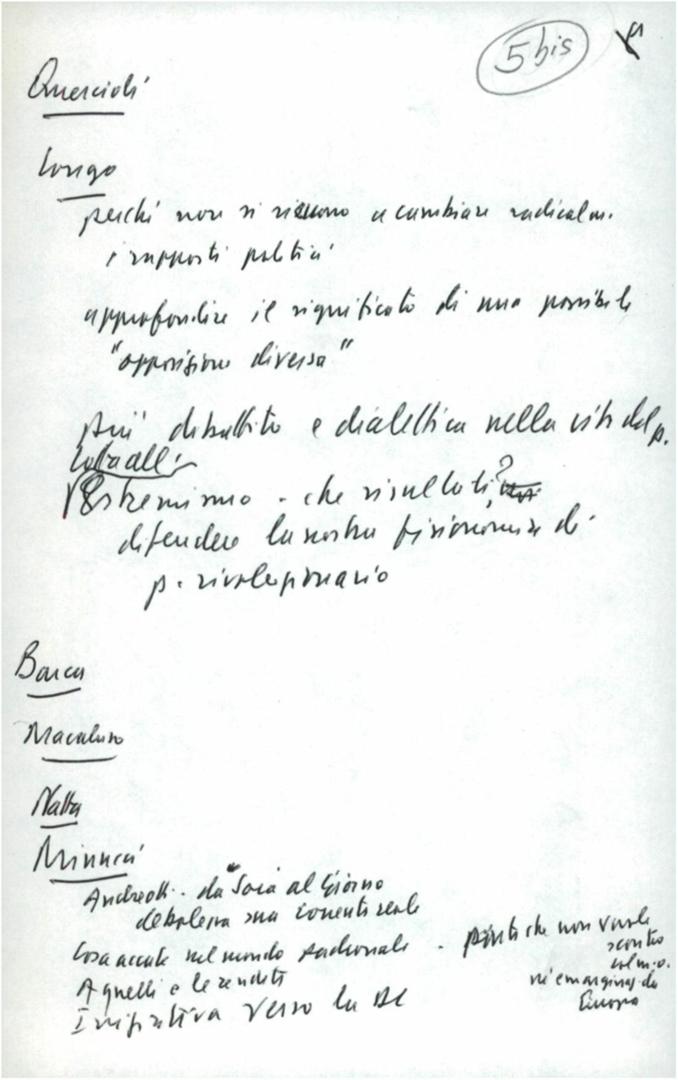 5 bis
Quercioli
Longo
perché non si riescono a cambiare radicalm.
i rapporti politici
approfondire il significato di una possibile
"opposizione diversa"
più dibattito e dialettica nella vita del p.
Lotta all'
Estremismo - che risultati?
difendere la nostra fisionomia di
p. rivoluzionario
Barca
Macaluso
Natta
Minucci
Andreotti - da al Giorno
debolezza ma
Cosa accade nel mondo padronale - che non vuole
scontro
col m.o.
né emarginaz. da
Europa
Agnelli e le rendite
Iniziativa verso la DC